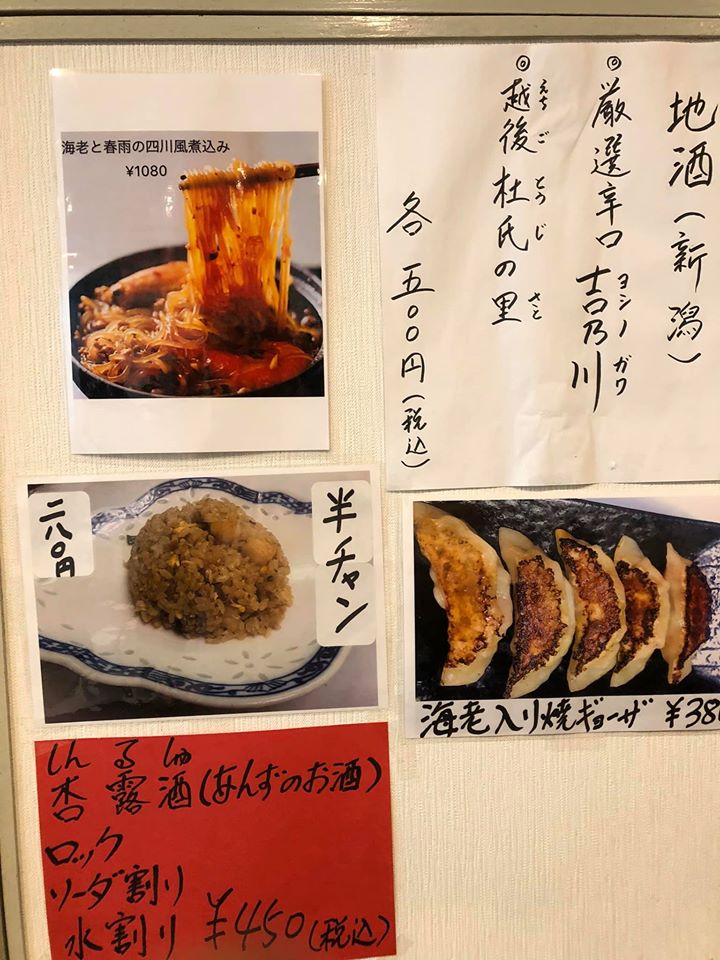 海老と春雨の四川風煮込み
¥1080
地酒(新潟)
◎厳選辛口 吉乃川
ヨシノガワ
◎越後杜氏の里
えちごとうじ さと
各 五〇〇円(税込)
半チャン
二八〇円
海老入り焼ギョーザ ¥380
しんるしゅ
杏露酒(あんずのお酒)
ロック
ソーダ割り
水割り ¥450(税込)